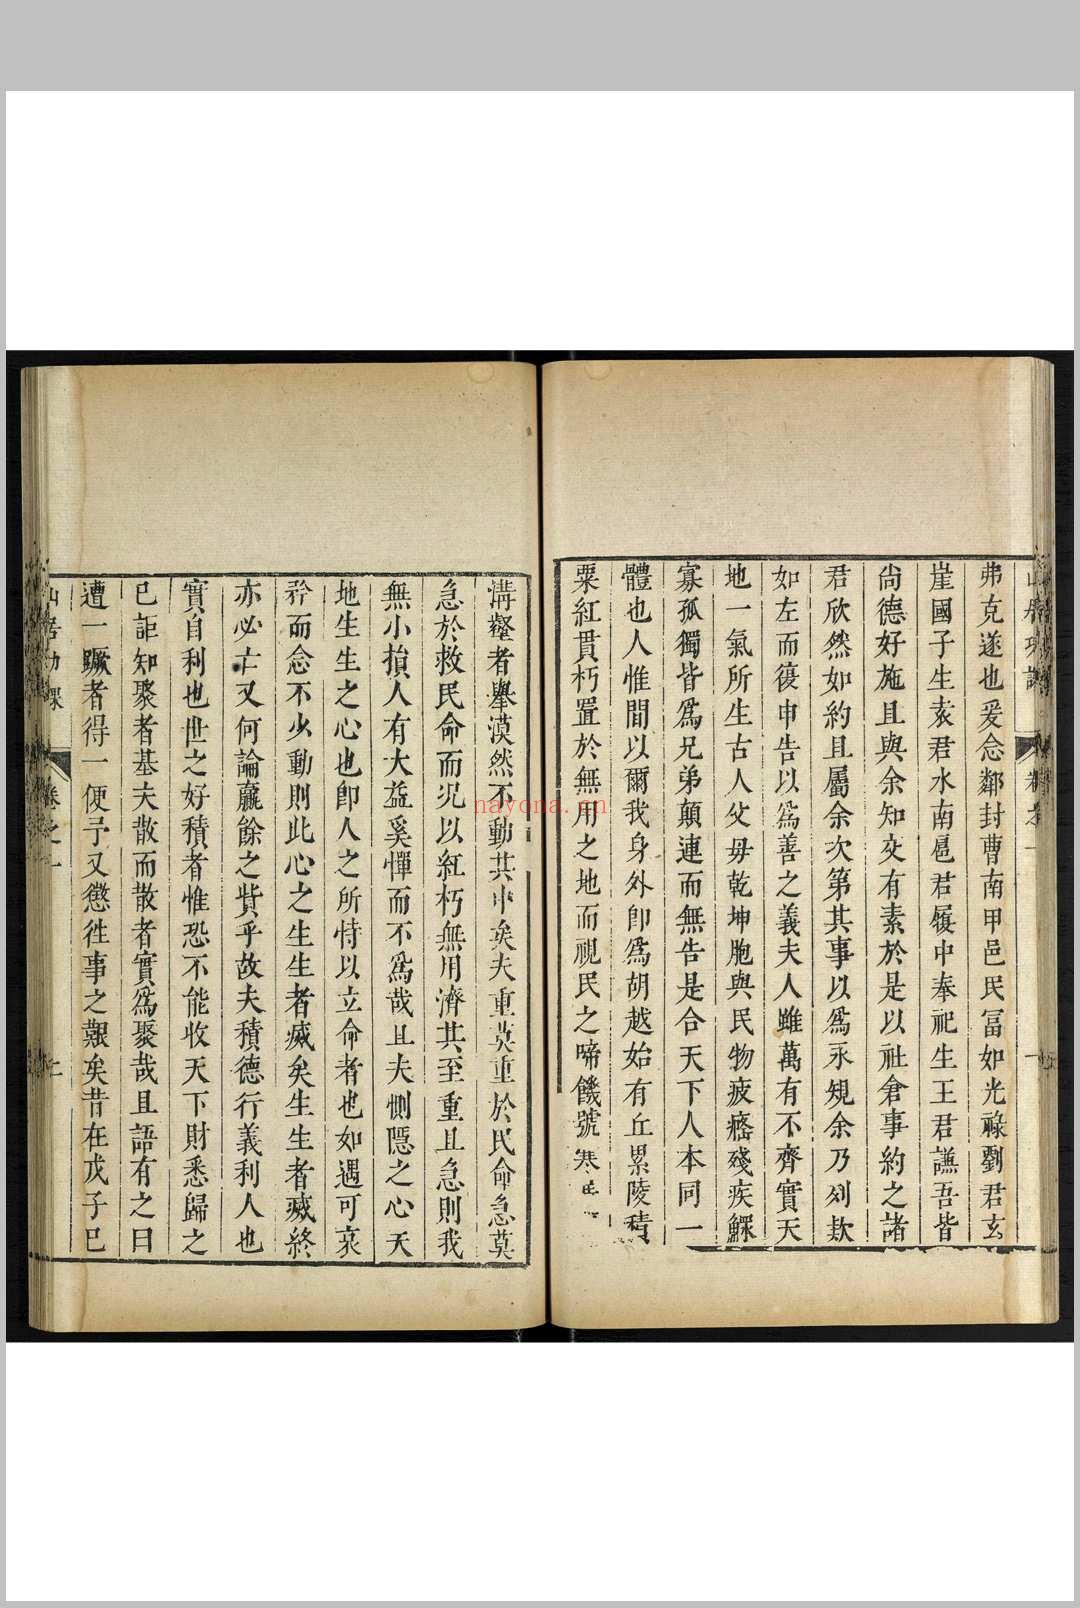 山居功課 卷之一
弗克遂也爰念鄰封曹南甲邑民冨如光祿劉君玄
崖國子生袁君水南扈君履中奉祀生王君讌吾皆
尚德好施且與余知交有素於是以社倉事約之諸
君欣然如約且屬余次第其事以爲永規余乃列款
如左而復申告以爲善之義夫人雖萬有不齊實天
地一氣所生古人父母乾坤胞與民物疲癃殘疾鰥
寡孤獨皆爲兄弟顛連而無告是合天下人本同一
體也人惟間以爾我身外卽爲胡越始有丘累陵積
粟紅貫朽置於無用之地而視民之啼饑號寒
溝壑者舉漠然不動其中矣夫重莫重於民命急莫
急於救民命而况以紅朽無用濟其至重且急則我
無小損人有大益奚憚而不爲哉且夫惻隱之心天
地生生之心也卽人之所恃以立命者也如遇可哀
矜而念不少動則此心之生生者滅矣生生者滅終
亦必亡又何論贏餘之貲乎故夫積德行義利人也
實自利也世之好積者惟恐不能收天下財悉歸之
已詎知聚者基夫散而散者實爲聚哉且語有之曰
遭一蹶者得一便予又懲徃事之艱矣昔在戊子巳
山居功課 卷之一
nayona.cn